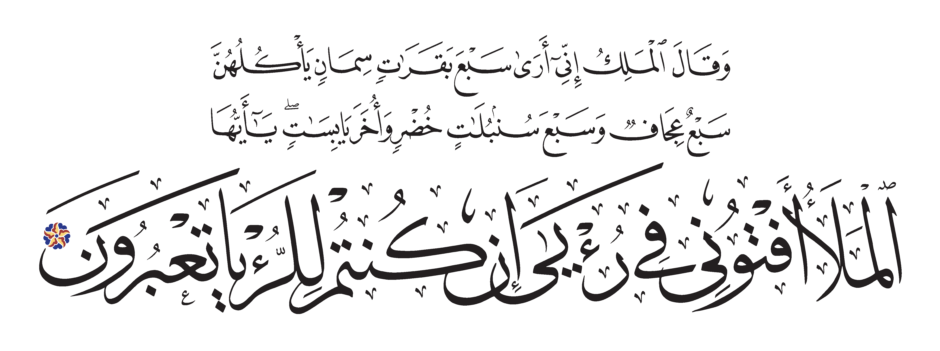 وَقَالَ ٱلْمَلِكُ إِنِّىٓ أَرَىٰ سَبْعَ بَقَرَٰتٍ سِمَانٍ يَأْكُلُهُنَّ
سَبْعٌ عِجَافٌ وَسَبْعَ سُنۢبُلَٰتٍ خُضْرٍ وَأُخَرَ يَابِسَٰتٍ ۖ يَٰٓأَيُّهَا
ٱلْمَلَأُ أَفْتُونِى فِى رُءْيَٰىَ إِن كُنتُمْ لِلرُّءْيَا تَعْبُرُونَ